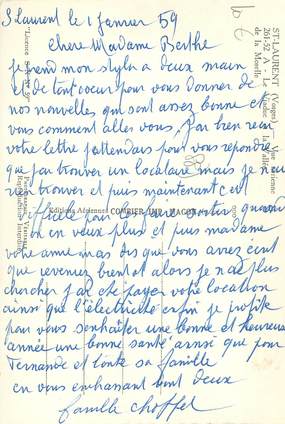 S Laurent le 1 janvier 59
Chere Madame Berthe
je prend mon stylo a deux main
et de tout coeur pour vous donner de
nos nouvelles qui sont assez bonne et
vous comment allez vous. J'ai bien recu
votre lettre j'attendais pour vous repondre
que j'ai trouver un locataire mais je n'ai
rien trouver et puis maintenant c'est
difficile par les sortir quand
on en veux plus et puis madame
votre amie mas dis que vous avrez ecrit
que revenez bientot alors je n'ai plus
chercher j'ai ete payer votre location
ainsi que l'électricité enfin je profite
pour vous souhaiter une bonne et heureuse
année une bonne santé ainsi que pour
Fernande et toute sa famille
en vous embrassant bien deux
famille Choffel
ST-LAURENT (Vosges) Vue aérienne
261-52 A Le Viaduc Vallée
de la Moselle
"Licence
Editions Aériennes COMBIER IMP. MACON
Reproduction interdite